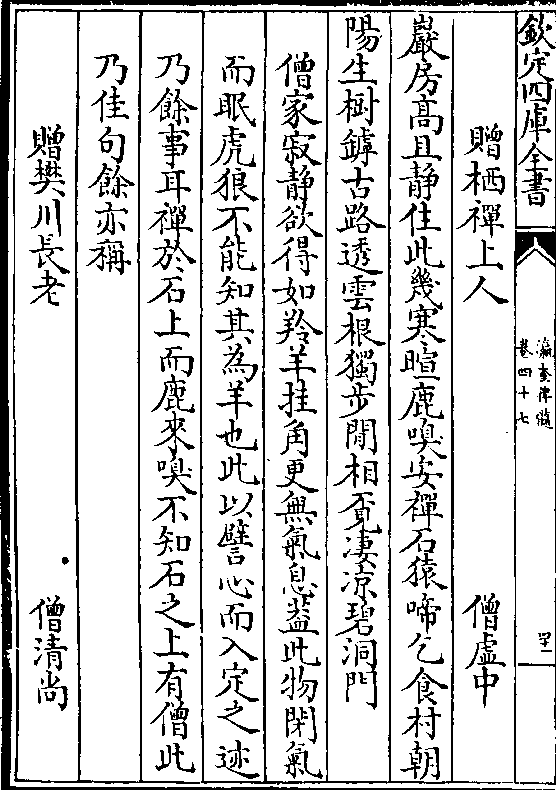 欽定四庫全書
瀛奎律髓
卷四十七
四十二
贈栖禪上人　僧虛中
巖房高且静住此幾寒暄鹿嗅安禪石猿啼乞食村朝
陽生樹罅古路透雲根獨步閒相覔凄凉碧洞門
僧家寂静欲得如羚羊挂角更無氣息葢此物閉氣
而眠虎狼不能知其為羊也此以譬心而入定之迹
乃餘事耳禪於石上而鹿來嗅不知石之上有僧此
乃佳句餘亦稱
贈樊川長老　僧清尚